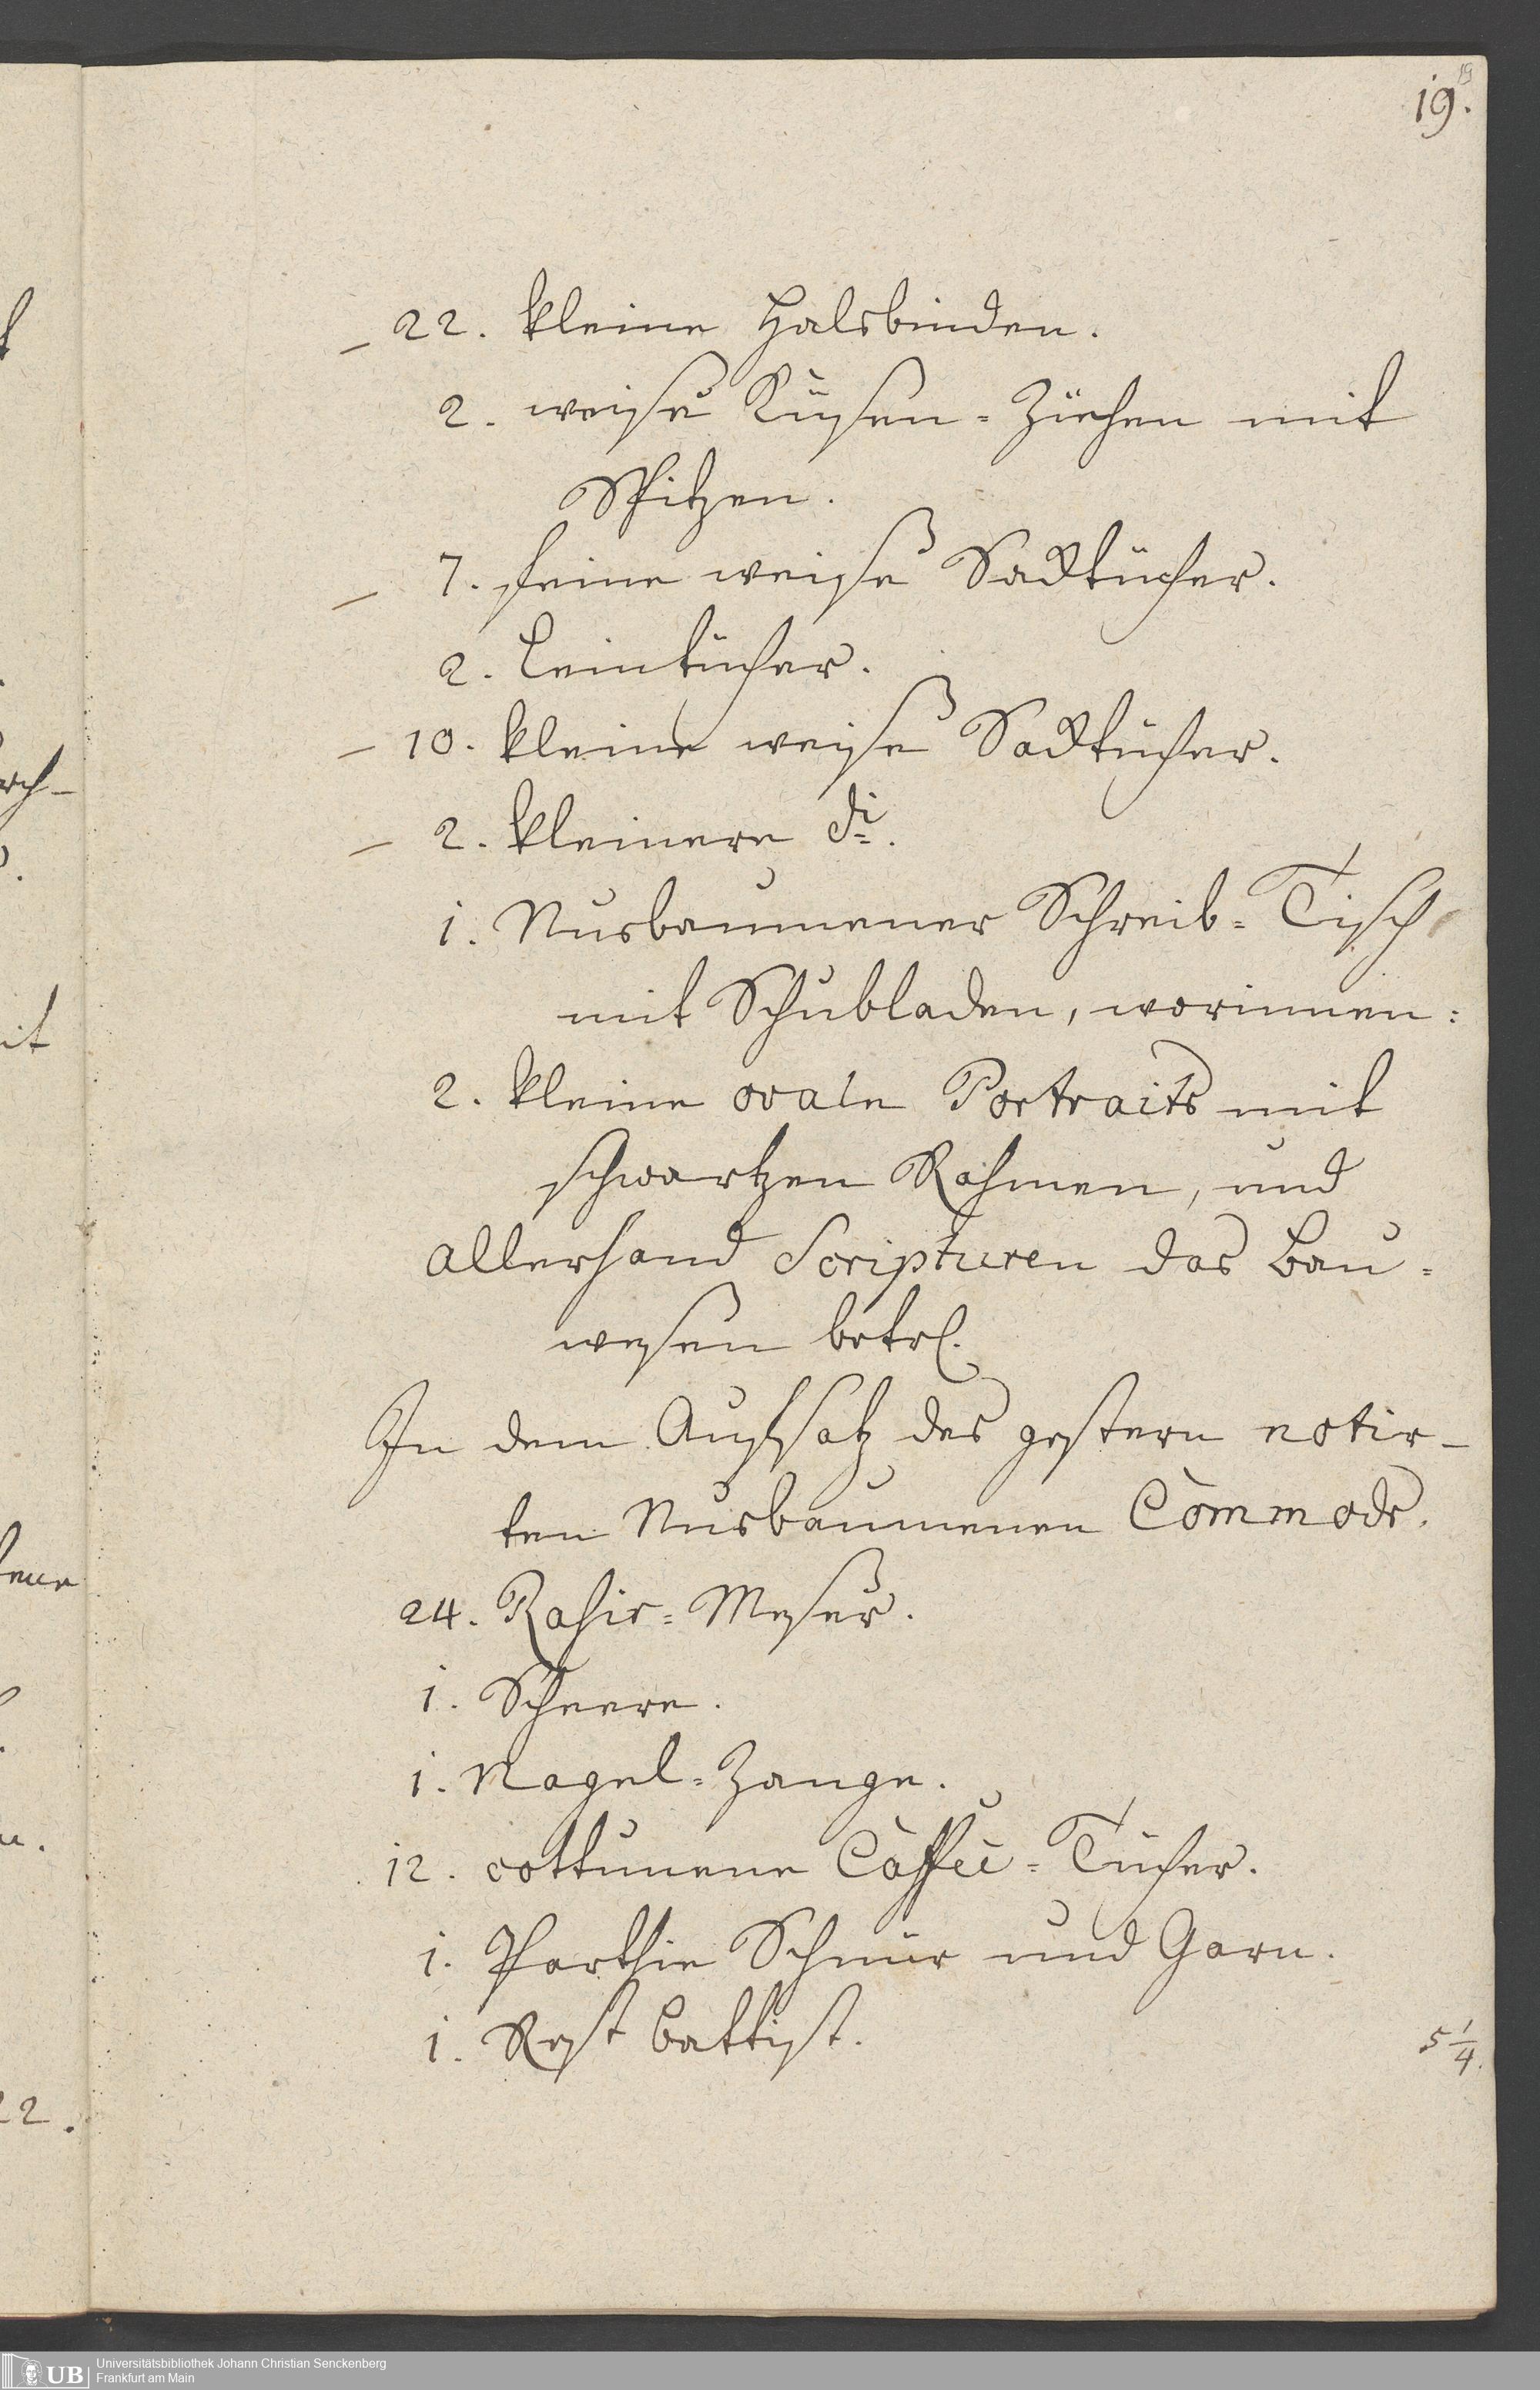 19
19.
22. kleine Halsbinden.
2. weiße Küßen-Ziehen mit
Spitzen.
7. feine weiße Sacktücher.
2. Leintücher.
10. kleine weiße Sacktücher.
2. kleinere do.
1. Nusbaumener Schreib-Tisch
mit Schubladen, worinnen:
2. kleine ovale Portraits mit
schwartzen Rahmen, und
allerhand Scripturen das Bau-
wesen betr.
In dem Auffsatz des gestern notir-
ten Nusbaumenen Commode.
24. Rasir-Meßer.
1. Scheere.
1. Nagel-Zange.
12. cottunene Caffée-Tücher.
1. Parthie Schnur und Garn.
1. Rest Battist. 5 1/4.
Universitätsbibliothek Johann Christian Senckenberg
Frankfurt am Main
UB